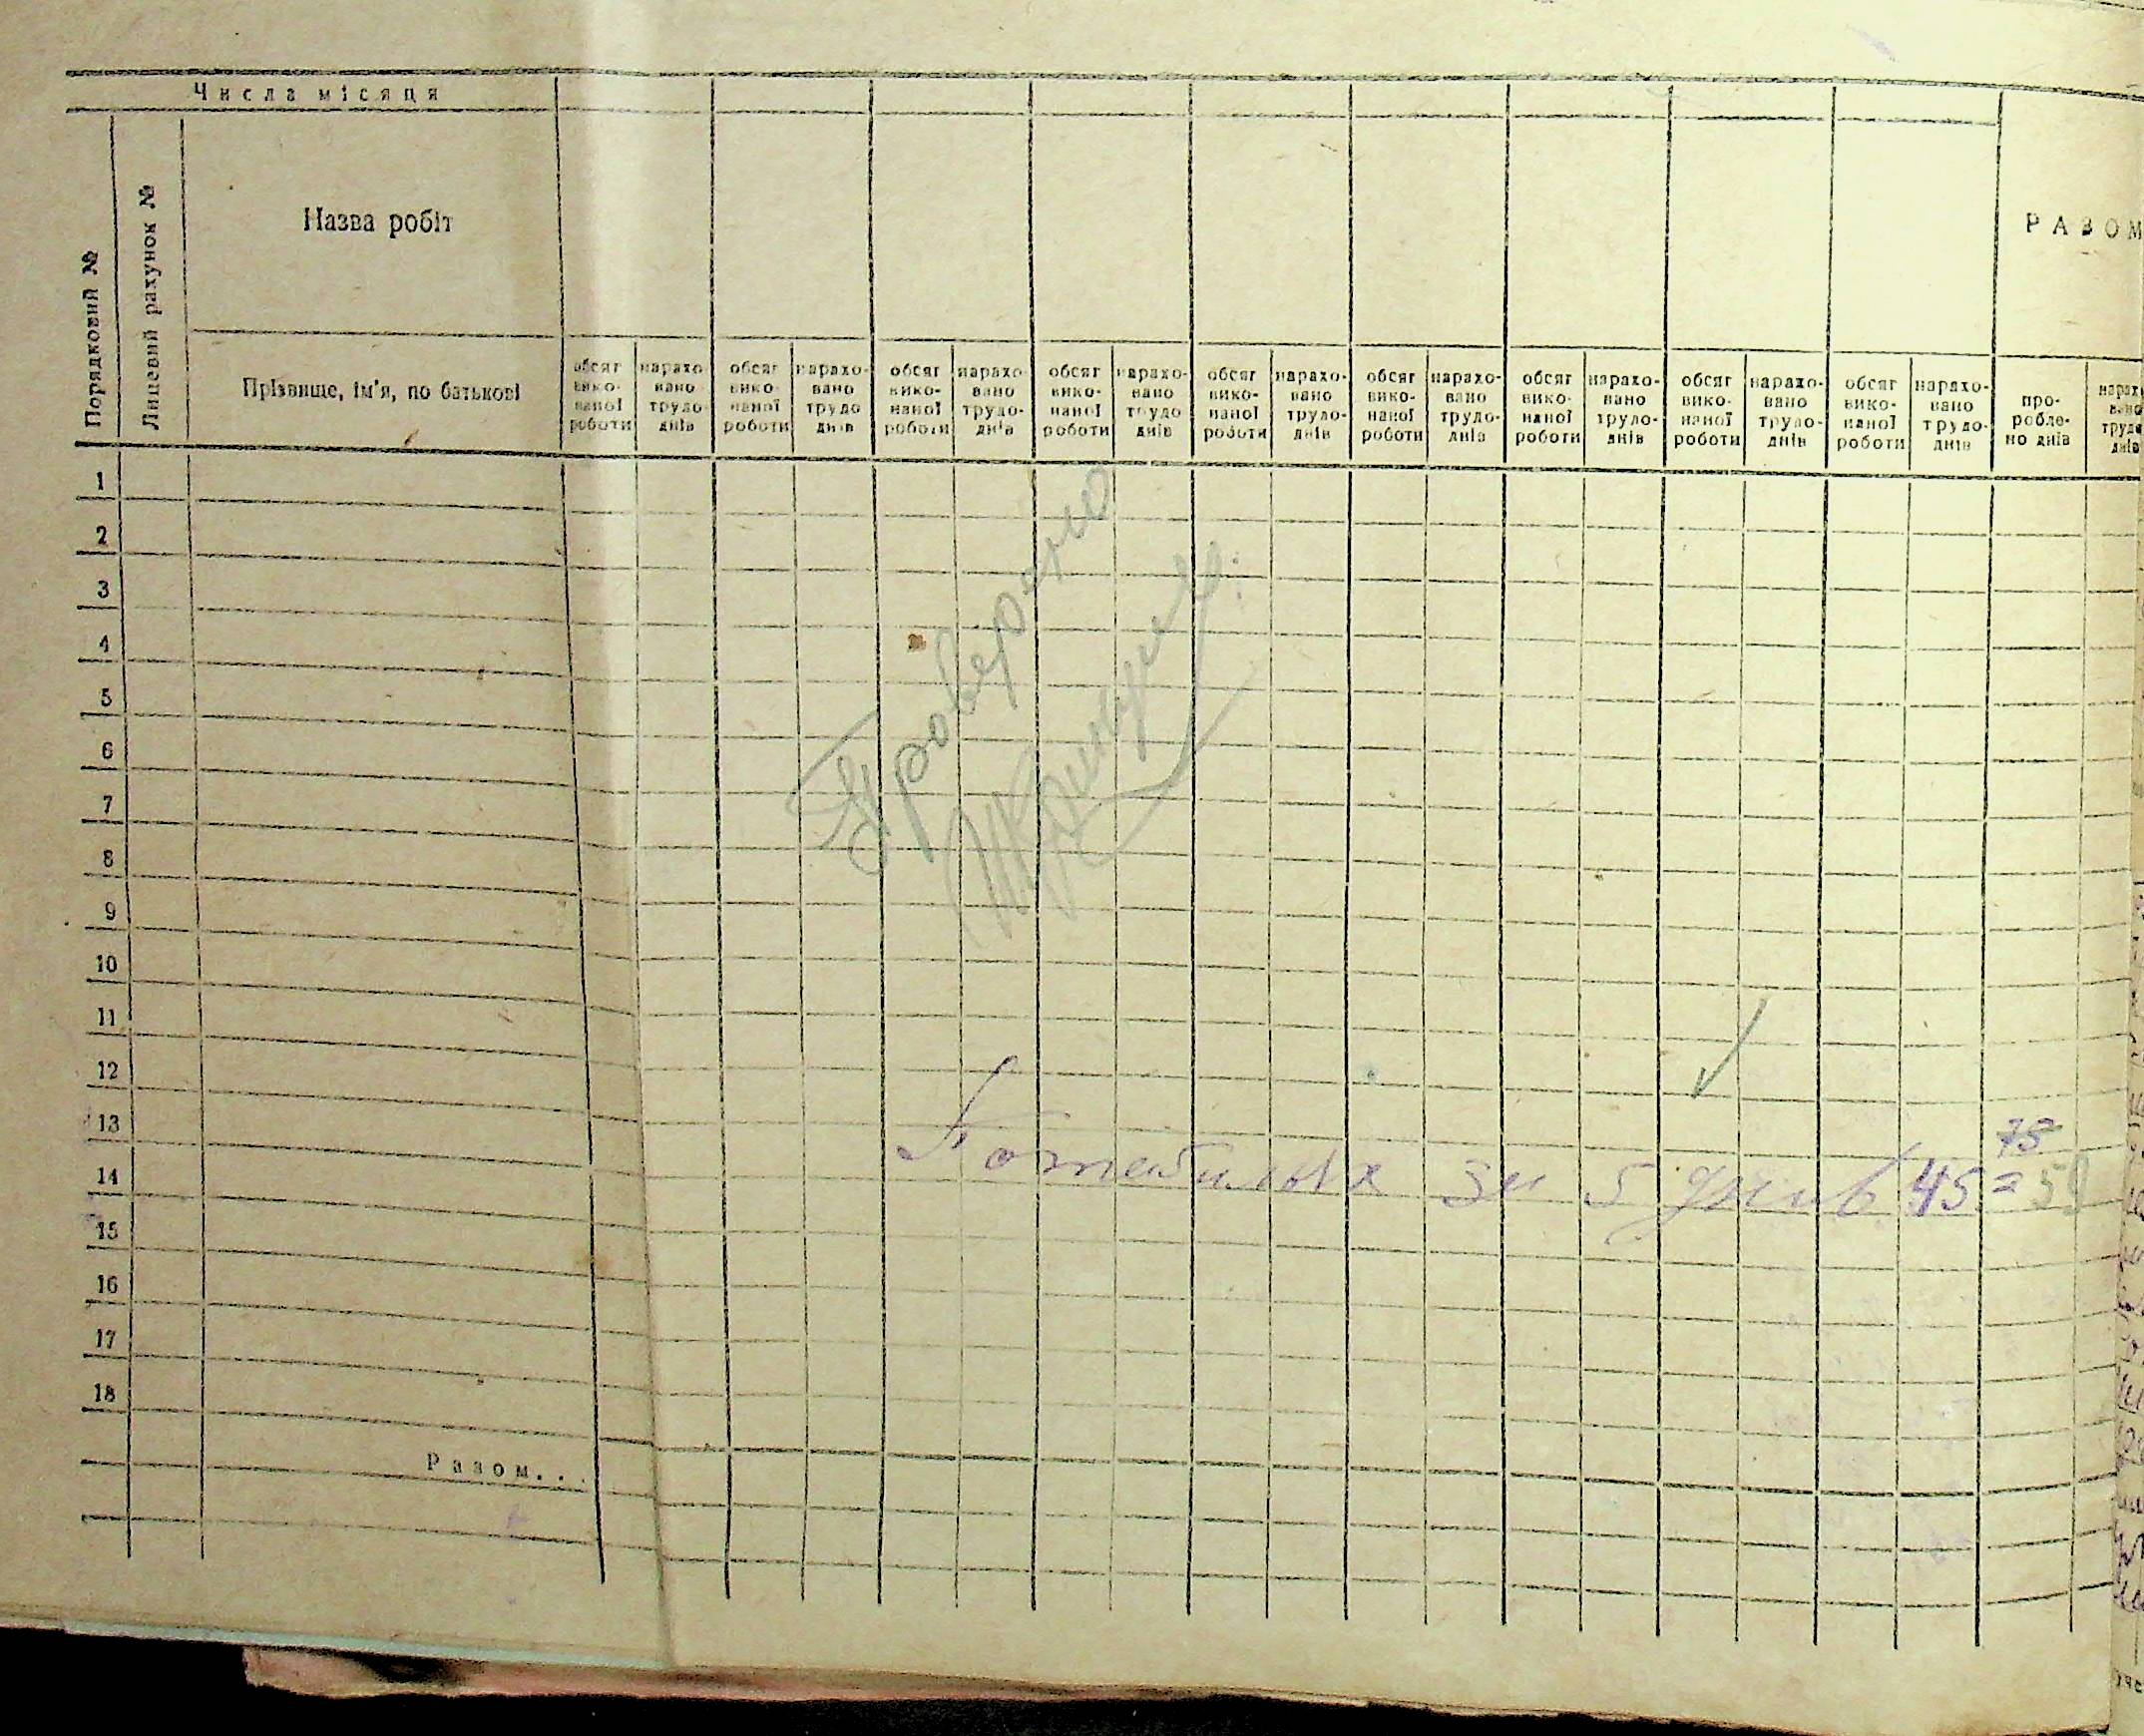 Числа місяця
Порядковий №
Лицевий рахунок №
Назва робіт
Прізвище, ім'я, по батькові
РАЗОМ
обсяг вико- наної роботи
нарахо- вано трудо- днів
обсяг вико- наної роботи
нарахо- вано трудо- днів
обсяг вико- наної роботи
нарахо- вано трудо- днів
обсяг вико- наної роботи
нарахо- вано трудо- днів
обсяг вико- наної роботи
нарахо- вано трудо- днів
обсяг вико- наної роботи
нарахо- вано трудо- днів
обсяг вико- наної роботи
нарахо- вано трудо- днів
обсяг вико- наної роботи
нарахо- вано трудо- днів
обсяг вико- наної роботи
нарахо- вано трудо- днів
про- робле- но днів
1
2
3
4
5
6
7
8
9
10
11
12
13
14
15
16
17
18
Проверено
5 днив 45 = 59
75
Разом...